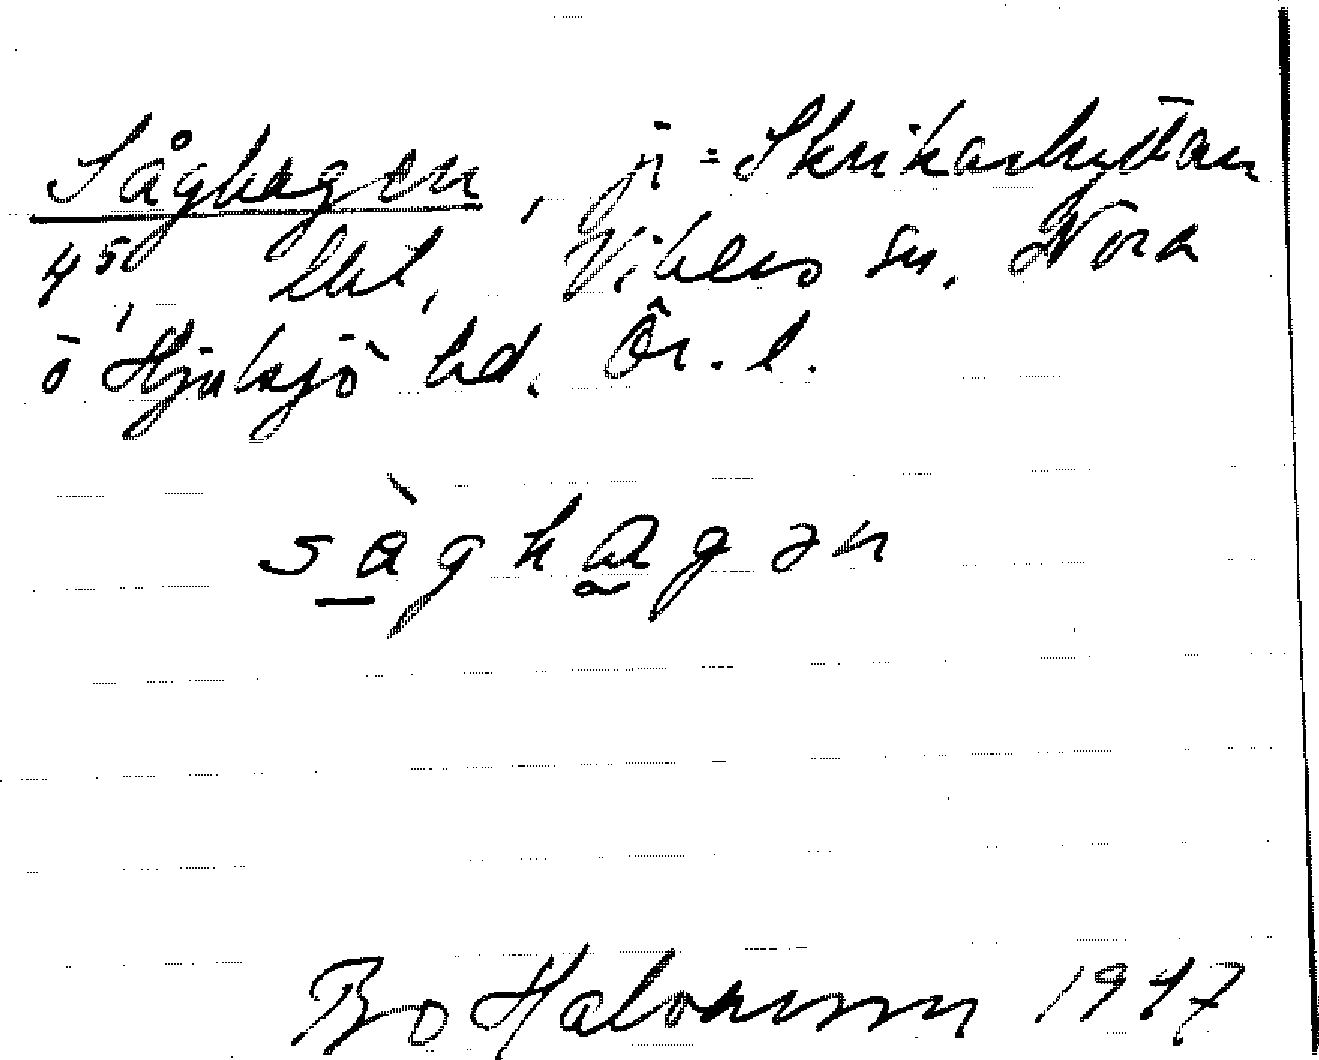 Såghagen, ji = Skrikarhyttan
4⁵, lht, Vikers sn. Nora
o Hjulsjö hd. Ör. l.
såghagən
Bo Halvarsson 1947